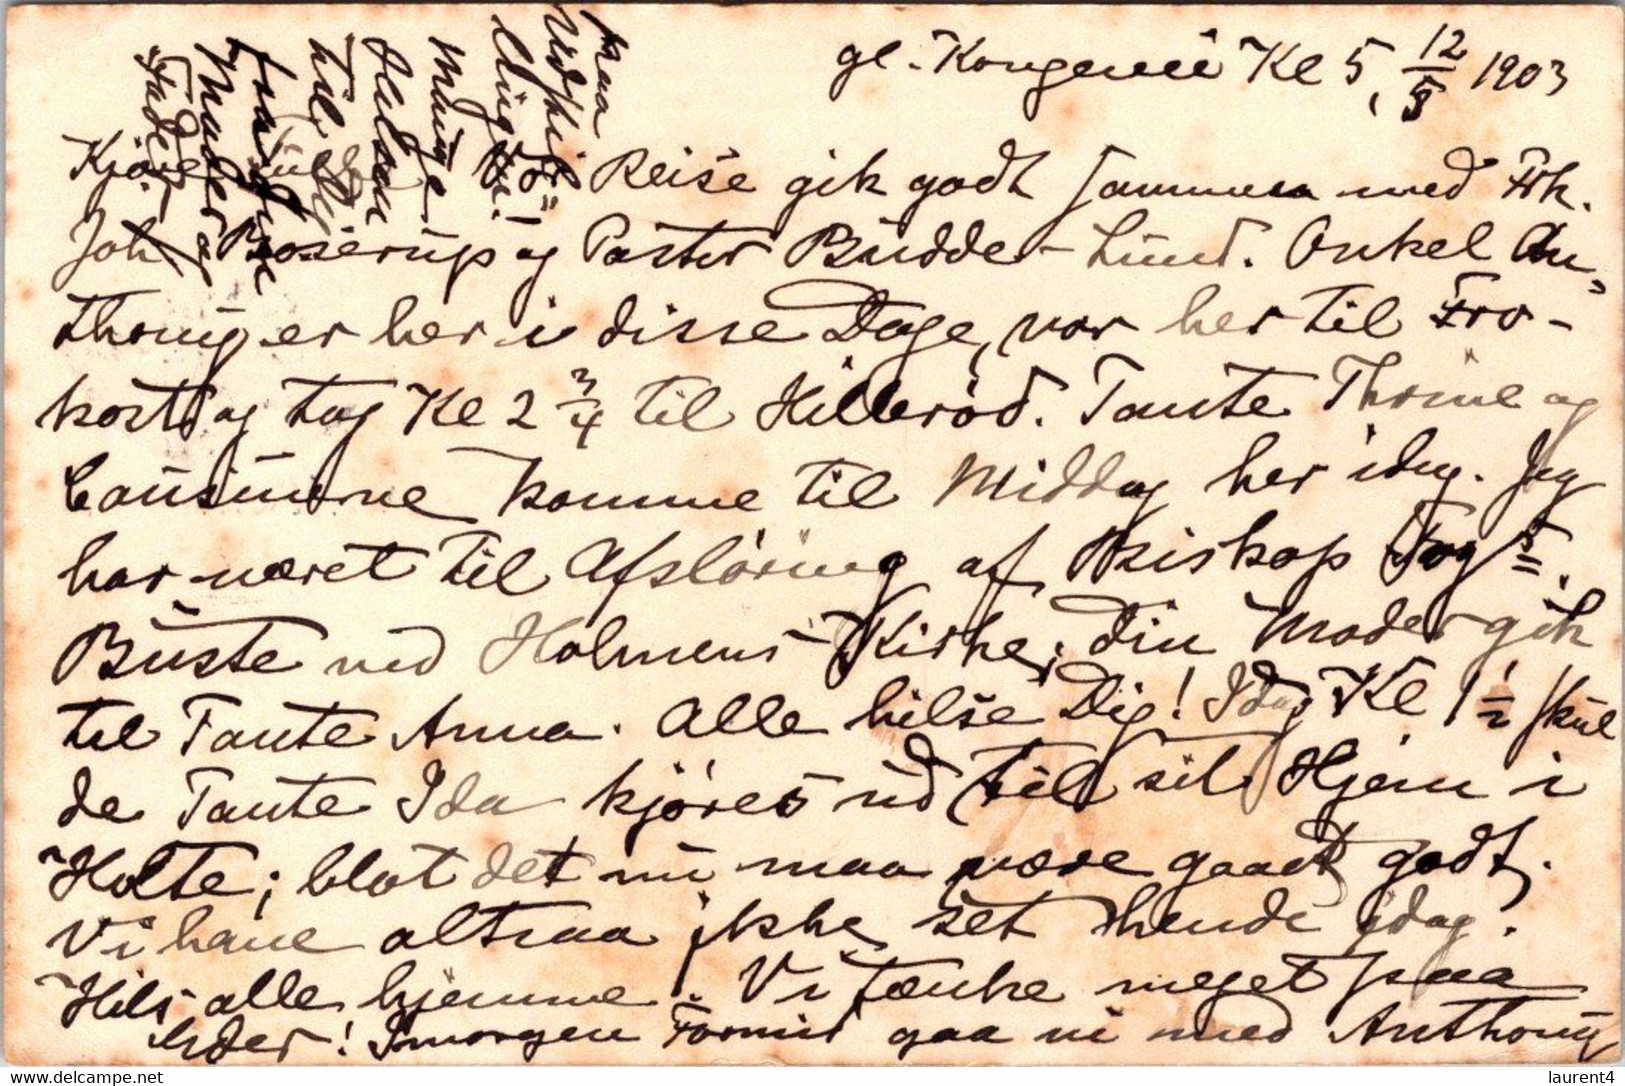 gl. Kongevei Kl 5, 12/8 1903
Kjære Reise gik godt sammen med Frk.
Joh. Boserup og Pastor Budde-Lund. Onkel An-
thony er her i disse Dage, var her til Fro-
kost og tog Kl 2 3/4 til Hilleröd. Tante Thrine og
Cousinerne komme til Middag her idag. Jeg
har været til Afslöring af Biskop Fog's
Büste ved Holmens Kirke; din Moder gik
til Tante Anna. Alle hilse Dig! Idag Kl 1 1/2 skul
de Tante Ida kjöres ud til sit Hjem i
Holte; blot det nu maa være gaaet godt.
Vi have altsaa ikke set hende idag.
Hils alle hjemme. Vi tænke meget paa
Eder! Imorgen Formid gaa vi med Anthony
paa
Udflugt
Mange
Hilsen
til
fra
Moder og
Fader
laurent4